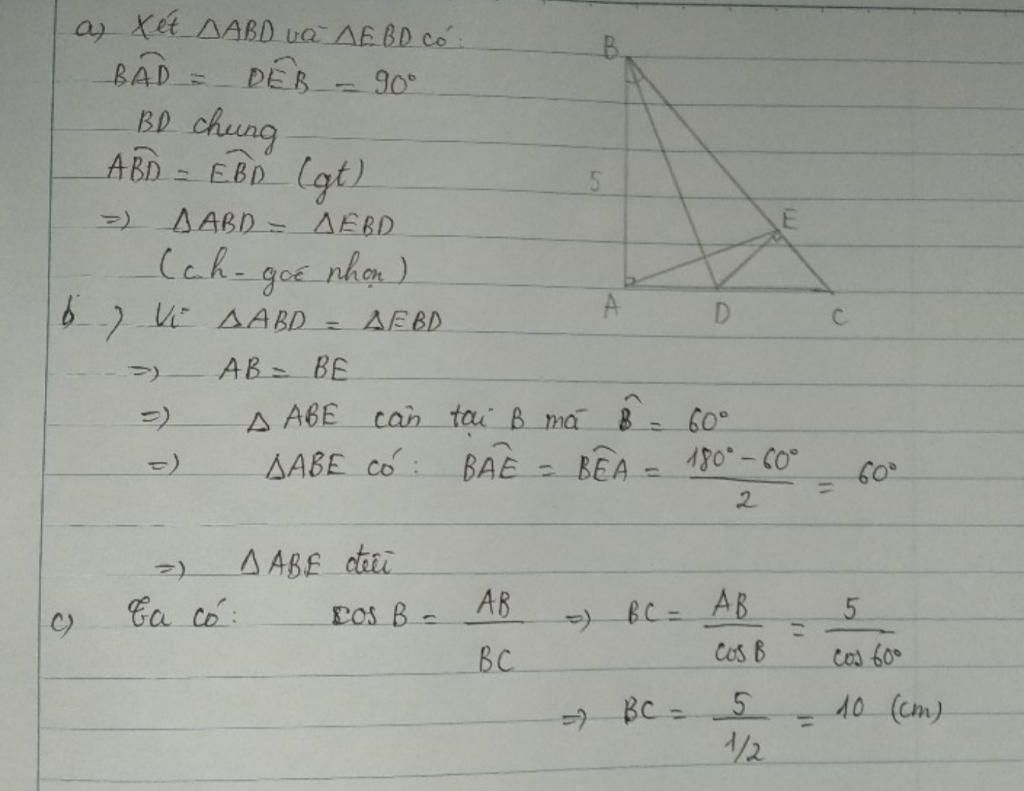 a) Xét ΔABD và ΔEBD có:
BAD^ = DEB^ = 90°
BD chung
ABD^ = EBD^ (gt)
=> ΔABD = ΔEBD
(ch - góc nhọn)
b) Vì ΔABD = ΔEBD
=> AB = BE
=> ΔABE cân tại B mà B^ = 60°
=> ΔABE có: BAE^ = BEA^ = (180° - 60°)/2 = 60°
=> ΔABE đều
c) Ta có: cos B = AB/BC => BC = AB/cos B = 5/cos 60°
=> BC = 5/(1/2) = 10 (cm)
B
5
E
A
D
C